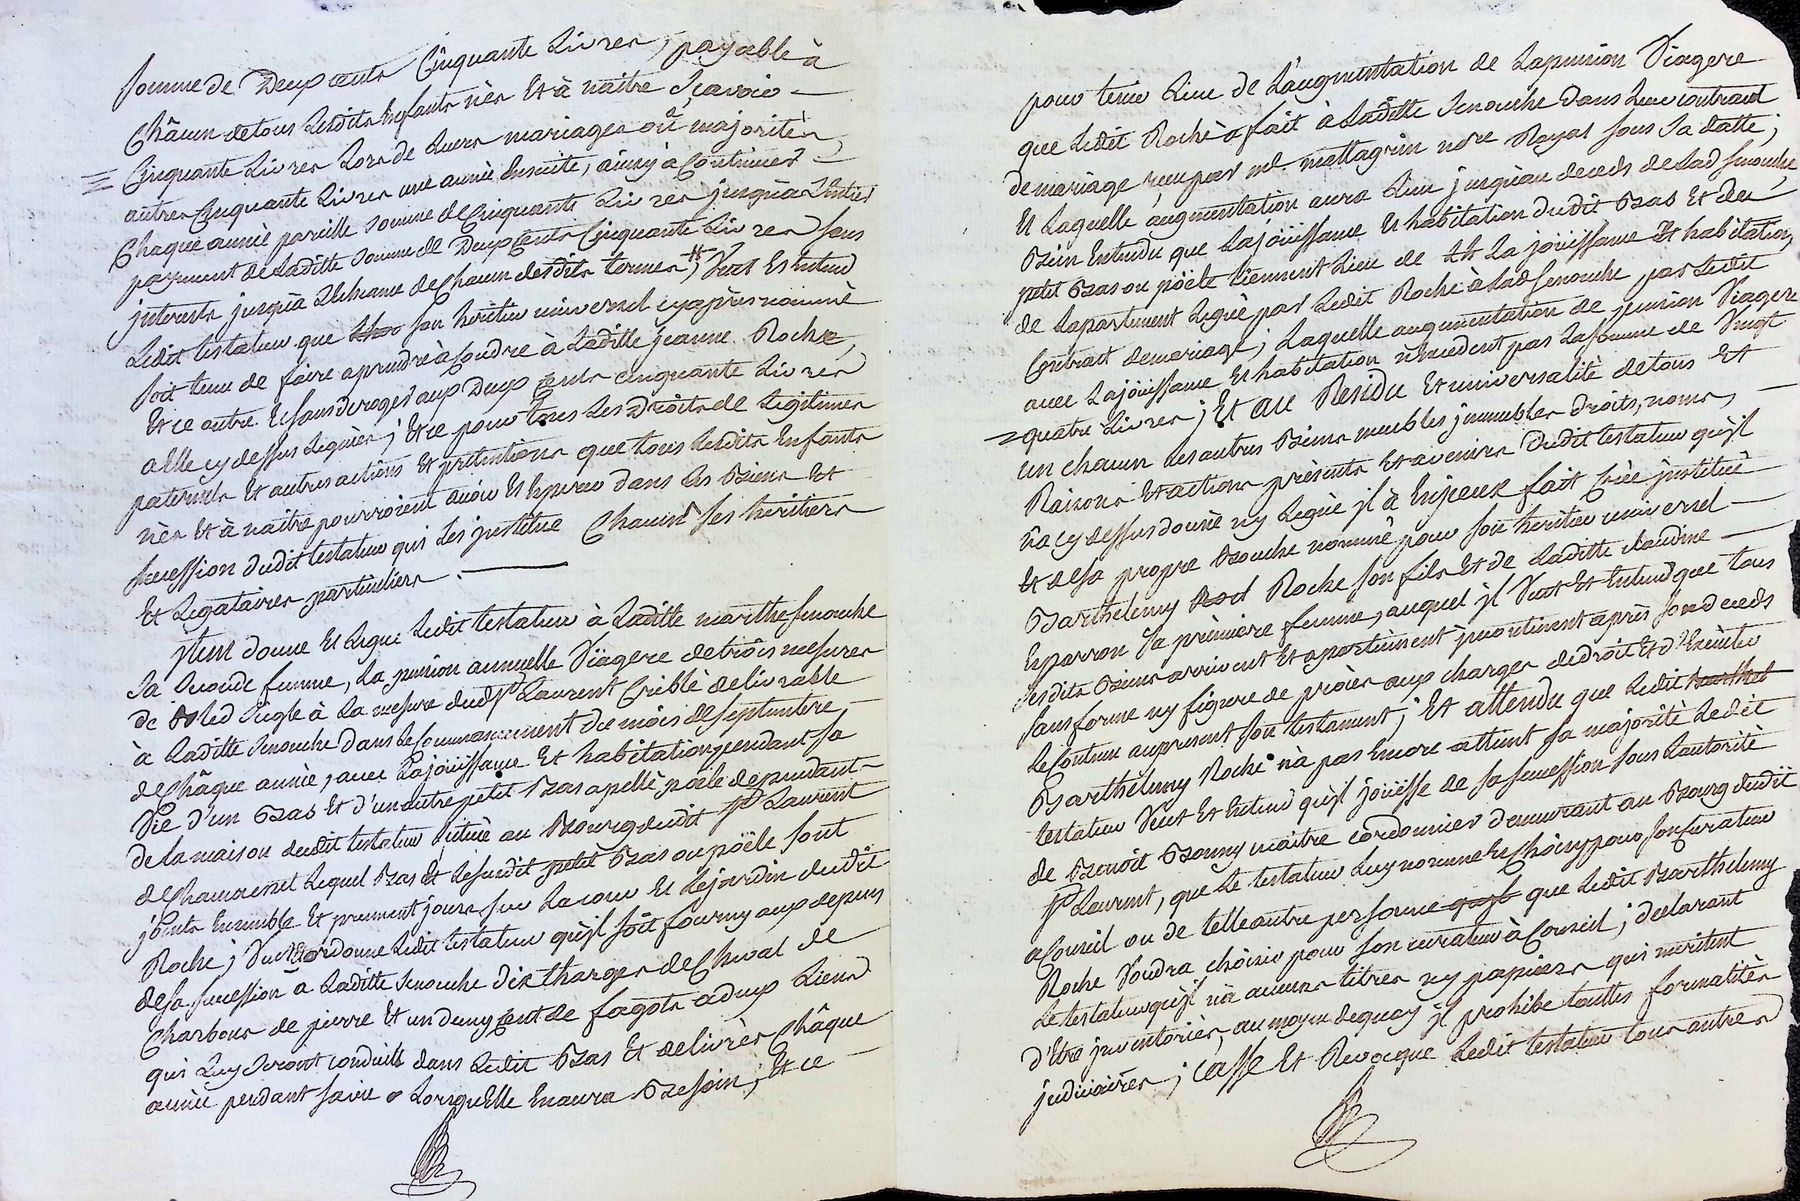 somme de Deux cents Cinquante Livres, payable à
Châcun de tous Lesdits Enfants nés Et à naitre Sçavoir —
Cinquante Livres Lors de Leurs mariages où majoritès,
autres Cinquante Livres une année Ensuite, ainsy à Continuer —
Chaque année pareille somme de Cinquante Livres jusqu'à L'entier
payement de Laditte somme de Deux Cents Cinquante Livres sans
jnterests jusqu'à L'Echeance de Chacun desdits termes; Veut Et Entend
Ledit testateur que son heritier universel cyaprès nommé
soit tenu de faire aprendre à Coudre à Laditte jeanne Roche,
Et ce outre Et sans deroger aux Deux Cents cinquante Livres
a Elle cy dessus Leguées; Et ce pour tous Les Droits de Legitimes
paternels Et autres actions Et prétentions que tous Lesdits Enfants
nés Et à naitre pourroient avoir Et Esperer dans Les Biens Et
succession dudit testateur qui Les jnstitue Chacun ses héritiers
Et Legataires particuliers. —
jtem donne Et Legue Ledit testateur à Laditte marithe senouche
sa seconde femme, La pension annuelle Viagere de trois mesures
de bled seigle à La mesure dudt St Laurent Criblé delivrable
à Laditte senouche dans Le Commancement du mois de septembre
de châque année, avec La joüissance Et habitation pendant sa
Vie d'un Bas Et d'un autre petit Bas apellé poële dependant
de La maison dudit testateur située au Bourg dudit St Laurent
de Chamousset Lequel Bas Et Lesusdit petit Bas ou poële sont
joints Ensemble Et prennent jours sur La cour Et Le jardin dudit
Roche; Veut Et ordonne Ledit testateur qu'jl soit fourny aux depens
de sa succession a Laditte senouche dix Charges de Cheval de
Charbons de pierre Et un demy Cent de fagots a deux Liens
qui Luy seront conduits dans Ledit Bas Et delivrés Châque
année pendant sa vie Lorsqu'Elle En aura Besoin; Et ce —
pour tenir Lieu de L'augmentation de La pension Viagere
que Ledit Roche a fait à Laditte senouche dans Leur contract
de mariage reçu par me mattagrin nore Royal sous sa datte;
Et Laquelle augmentation aura Lieu jusqu'au deceds de Lad senouche,
Bien Entendu que La joüissance Et habitation dudit Bas Et du
petit Bas ou poële tiennent Lieu de La joüissance Et habitation
de Lapartement Legué par Ledit Roche à Lad senouche par Ledit
Contract de mariage; Laquelle augmentation de pension Viagere
avec La joüissance Et habitation n'Excedent pas La somme de Vingt
quatre Livres; Et au Residu Et universalité de tous Et
un chacun Les autres Biens meubles jmmeubles droits, noms,
Raisons Et actions présents Et avenirs dudit testateur qu'jl
n'a cy dessus donné ny Legué jl à Enjceux fait Crée jnstitué
Et de sa propre Bouche nommé pour son heritier universel —
Barthelemy Roche son fils Et de Laditte claudine —
Enparron sa prémiere femme, auquel jl Veut Et Entend que tous
sesdits Biens arrivent Et apartiennent jncontinent après son deceds
sans forme ny figure de procès aux charges de droit Et d'Executer
Le Contenu au present son testament; Et attendu que Ledit
Barthélemy Roche n'à pas Encore atteint sa majorité Ledit
testateur Veut Et Entend qu'jl joüisse de sa succession sous Lautorité
de Benoit Bonny maitre cordonnier demeurant au Bourg dudit
St Laurent, que Le testateur Luy nomme Et Choisy pour son Curateur
a Conseil ou de telle autre personne que Ledit Barthelemy
Roche Voudra choisir pour son curateur à Conseil; declarant
Le testateur qu'jl n'a aucuns titres ny papiers qui meritent
d'Etre jnventoriés, au moyen de quoy jl prohibe touttes formalités
judiciaires; Casse Et Revocque Ledit testateur tous autres